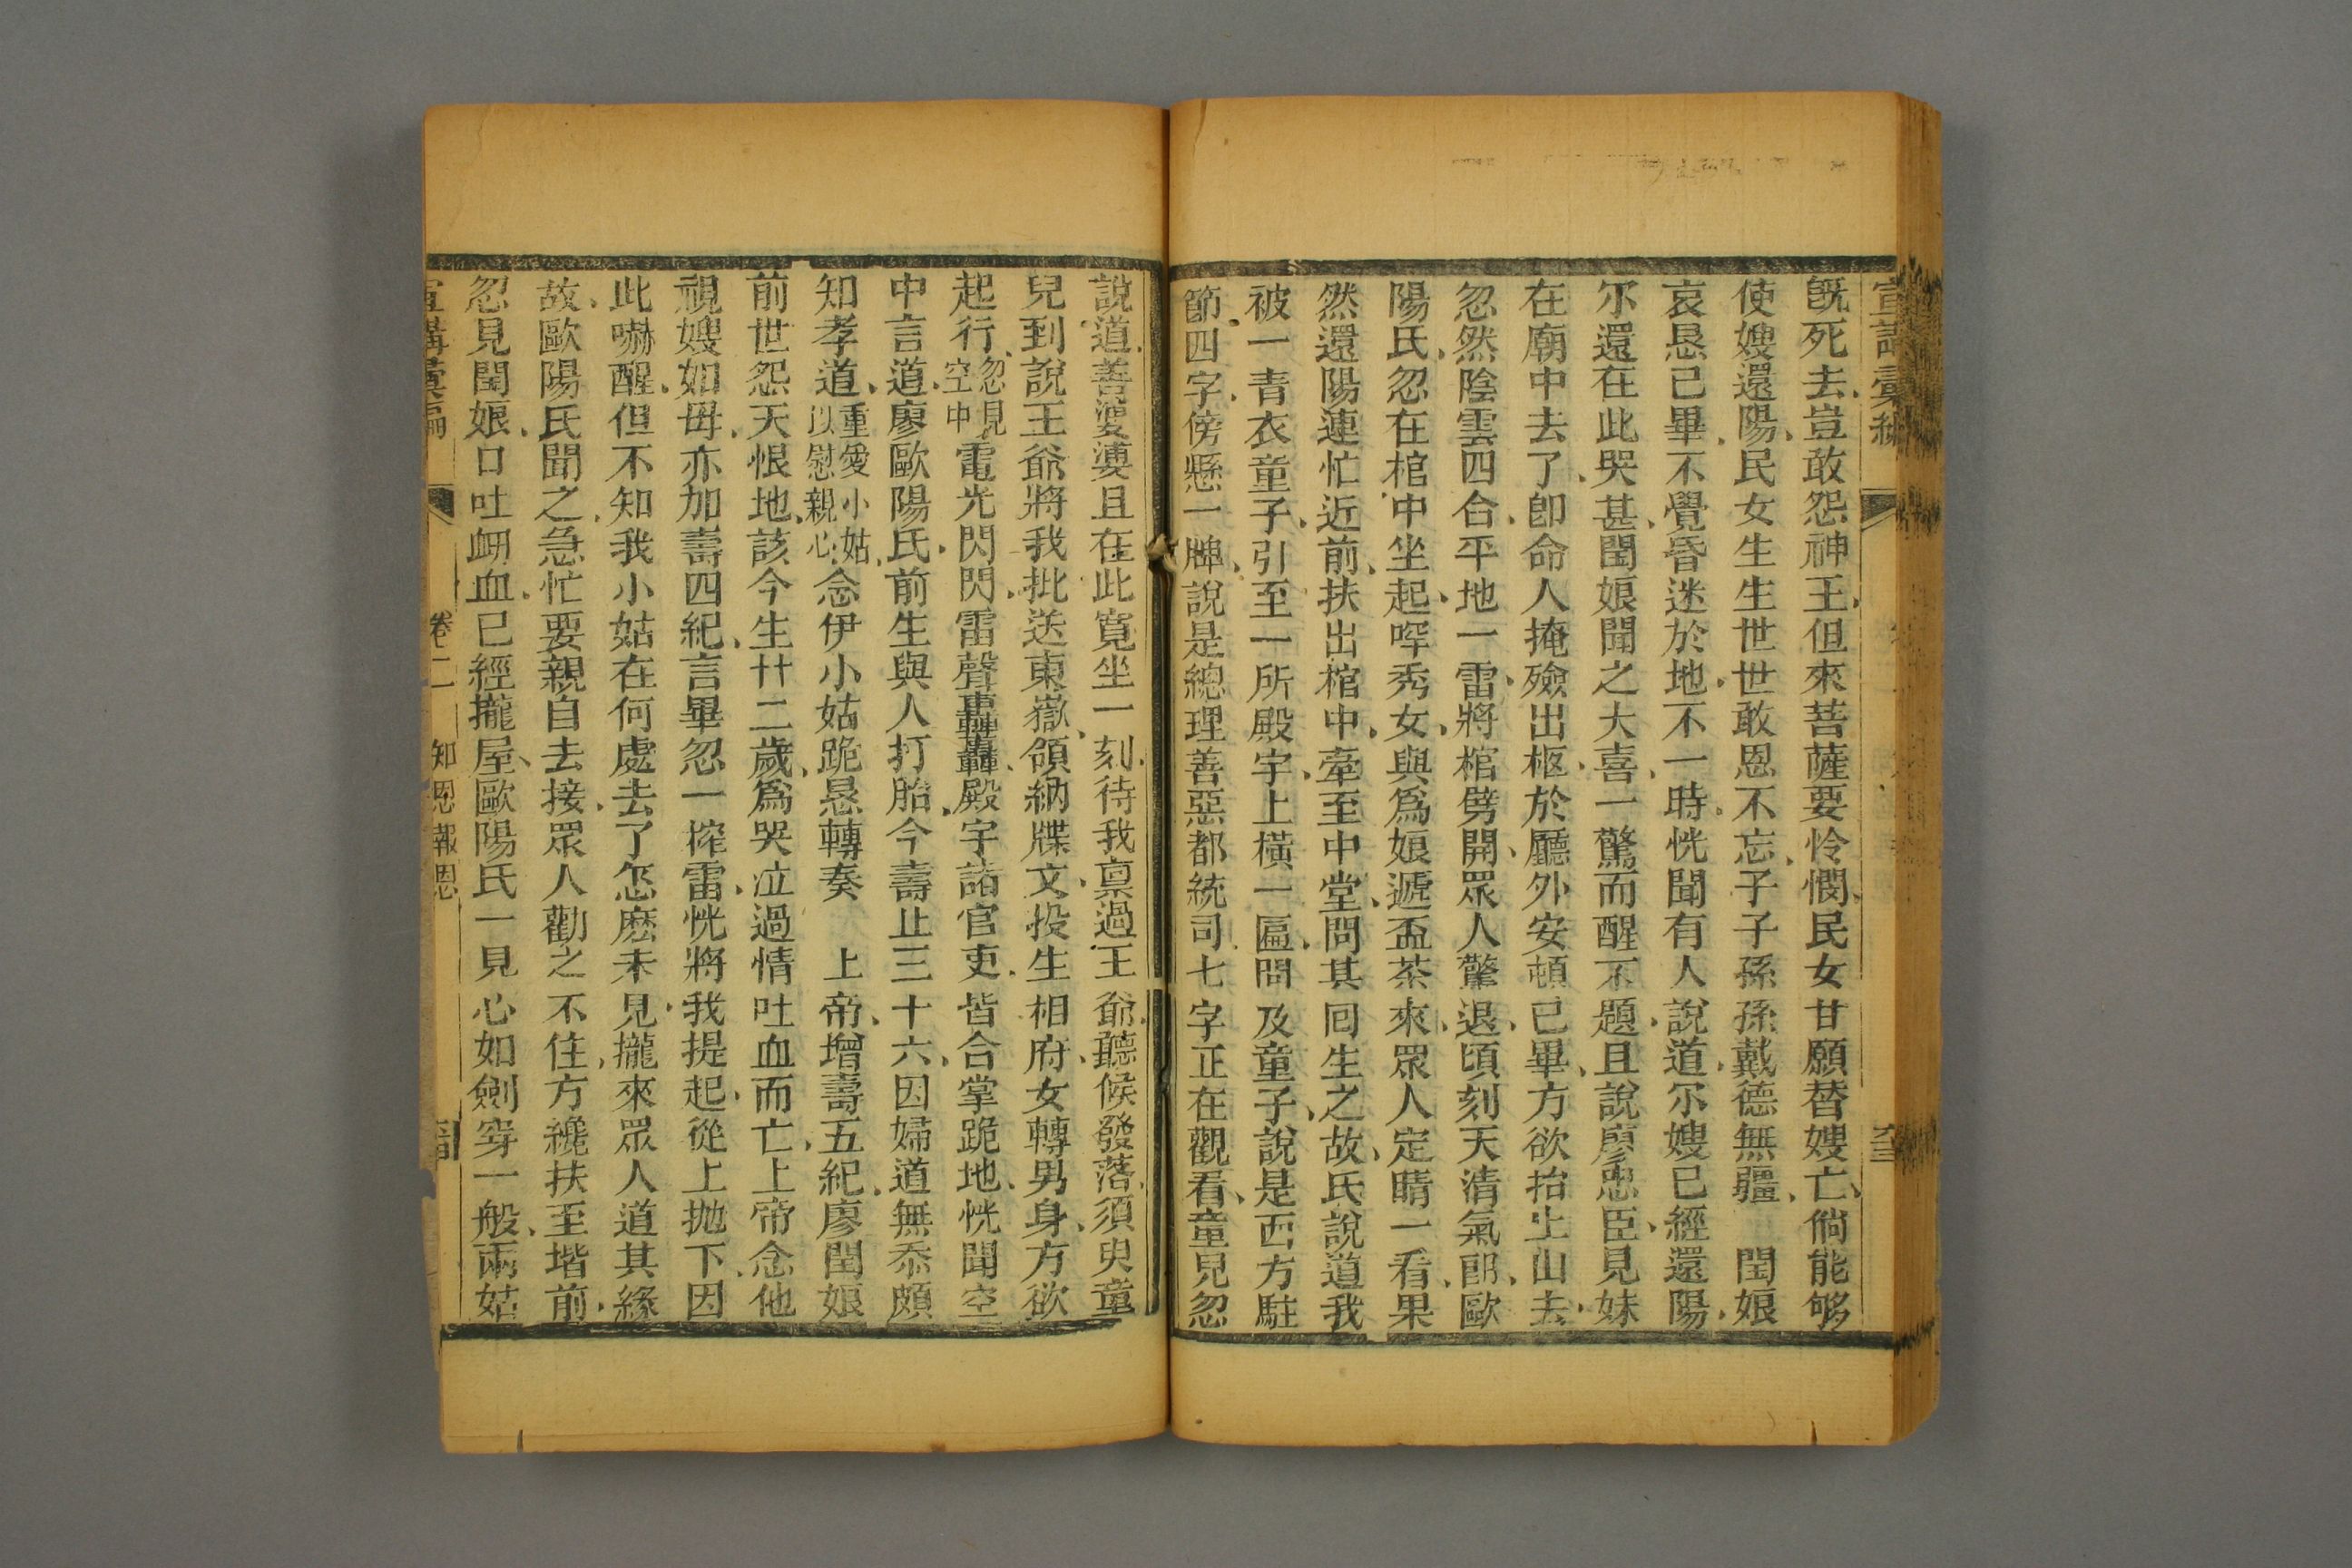 宣講彙編
既死去、豈敢怨神王、但來菩薩要怜憫、民女甘願替嫂亡、倘能够
使嫂還陽、民女生生世世敢恩不忘、子子孫孫戴德無疆、閏娘
哀恳已畢、不覺昏迷於地、不一時、恍聞有人說道、尔嫂已經還陽、
尔還在此哭甚、閏娘聞之大喜、一驚而醒不題、且說廖忠臣、見妹
在廟中去了、卽命人掩殮出柩、於廳外安頓已畢、方欲抬上山去、
忽然陰雲四合、平地一雷、將棺劈開、眾人驚退、頃刻天清氣郎、歐
陽氏、忽在棺中坐起、喊秀女、與爲娘遞盃茶來、眾人定睛一看、果
然還陽連忙近前、扶出棺中、牽至中堂、問其囘生之故、氏說道我
被一青衣童子、引至一所殿宇、上橫一匾、問及童子、說是西方駐
節、四字、傍懸一牌、說是總理善惡都統司、七字正在觀看、童兒忽
說道、善婆婆且在此寬坐一刻、待我禀過王爺、聽候發落、須臾童
兒到說王爺將我批送東嶽、領納牒文、投生相府、女轉男身、方欲
起行、忽見空中電光閃閃、雷聲轟轟、殿宇諸官吏、皆合掌跪地、恍聞空
中言道、廖歐陽氏、前生與人打胎、今壽止三十六、因婦道無忝、頗
知孝道、重愛小姑以慰親心、念伊小姑跪恳轉奏 上帝、增壽五紀、廖閏娘
前世怨天恨地、該今生廿二歲、爲哭泣過情吐血而亡、上帝念他
視嫂如母、亦加壽四紀、言畢忽一搾雷、恍將我提起、從上抛下、因
此嚇醒、但不知我小姑在何處去了怎麽未見攏來眾人道其緣
故、歐陽氏聞之、急忙要親自去接、眾人勸之不住、方纔扶至堦前、
忽見閏娘、口吐衂血、已經攏屋、歐陽氏一見心如劍穿一般、兩姑
宣講彙編 卷二 知恩報恩